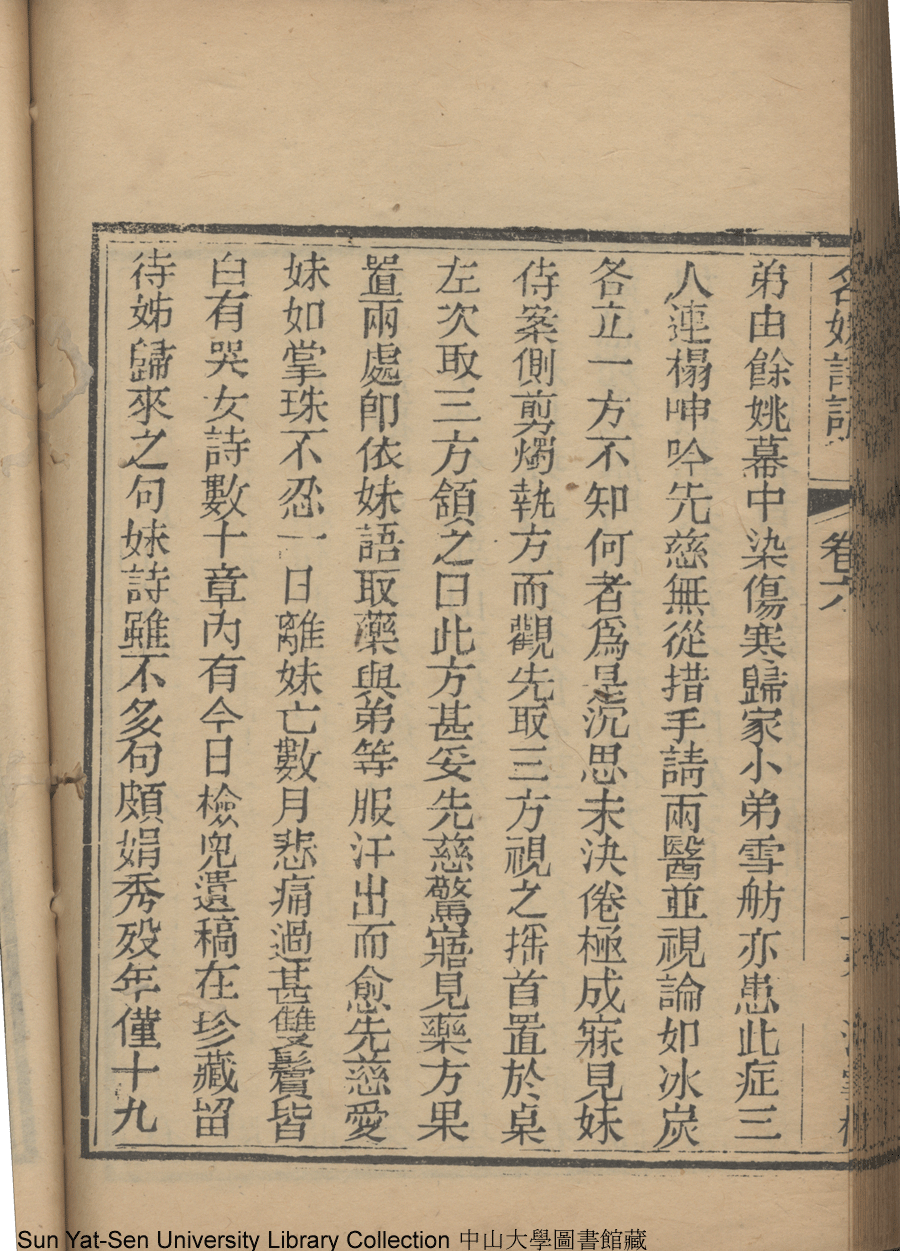 名媛詩話
卷六
弟由餘姚幕中染傷寒歸家小弟雪舫亦患此症三
人連榻呻吟先慈無從措手請兩醫並視論如冰炭
各立一方不知何者爲是沉思未決倦極成寐見妹
侍案側剪燭執方而觀先取三方視之搖首置於桌
左次取三方領之曰此方甚妥先慈驚寤見藥方果
置兩處卽依妹語取藥與弟等服汗出而愈先慈愛
妹如掌珠不忍一日離妹亡數月悲痛過甚雙鬢皆
白有哭女詩數十章內有今日檢兜遺稿在珍藏留
待姊歸來之句妹詩雖不多句頗娟秀歿年僅十九
Sun Yat-Sen University Library Collection 中山大學圖書館藏